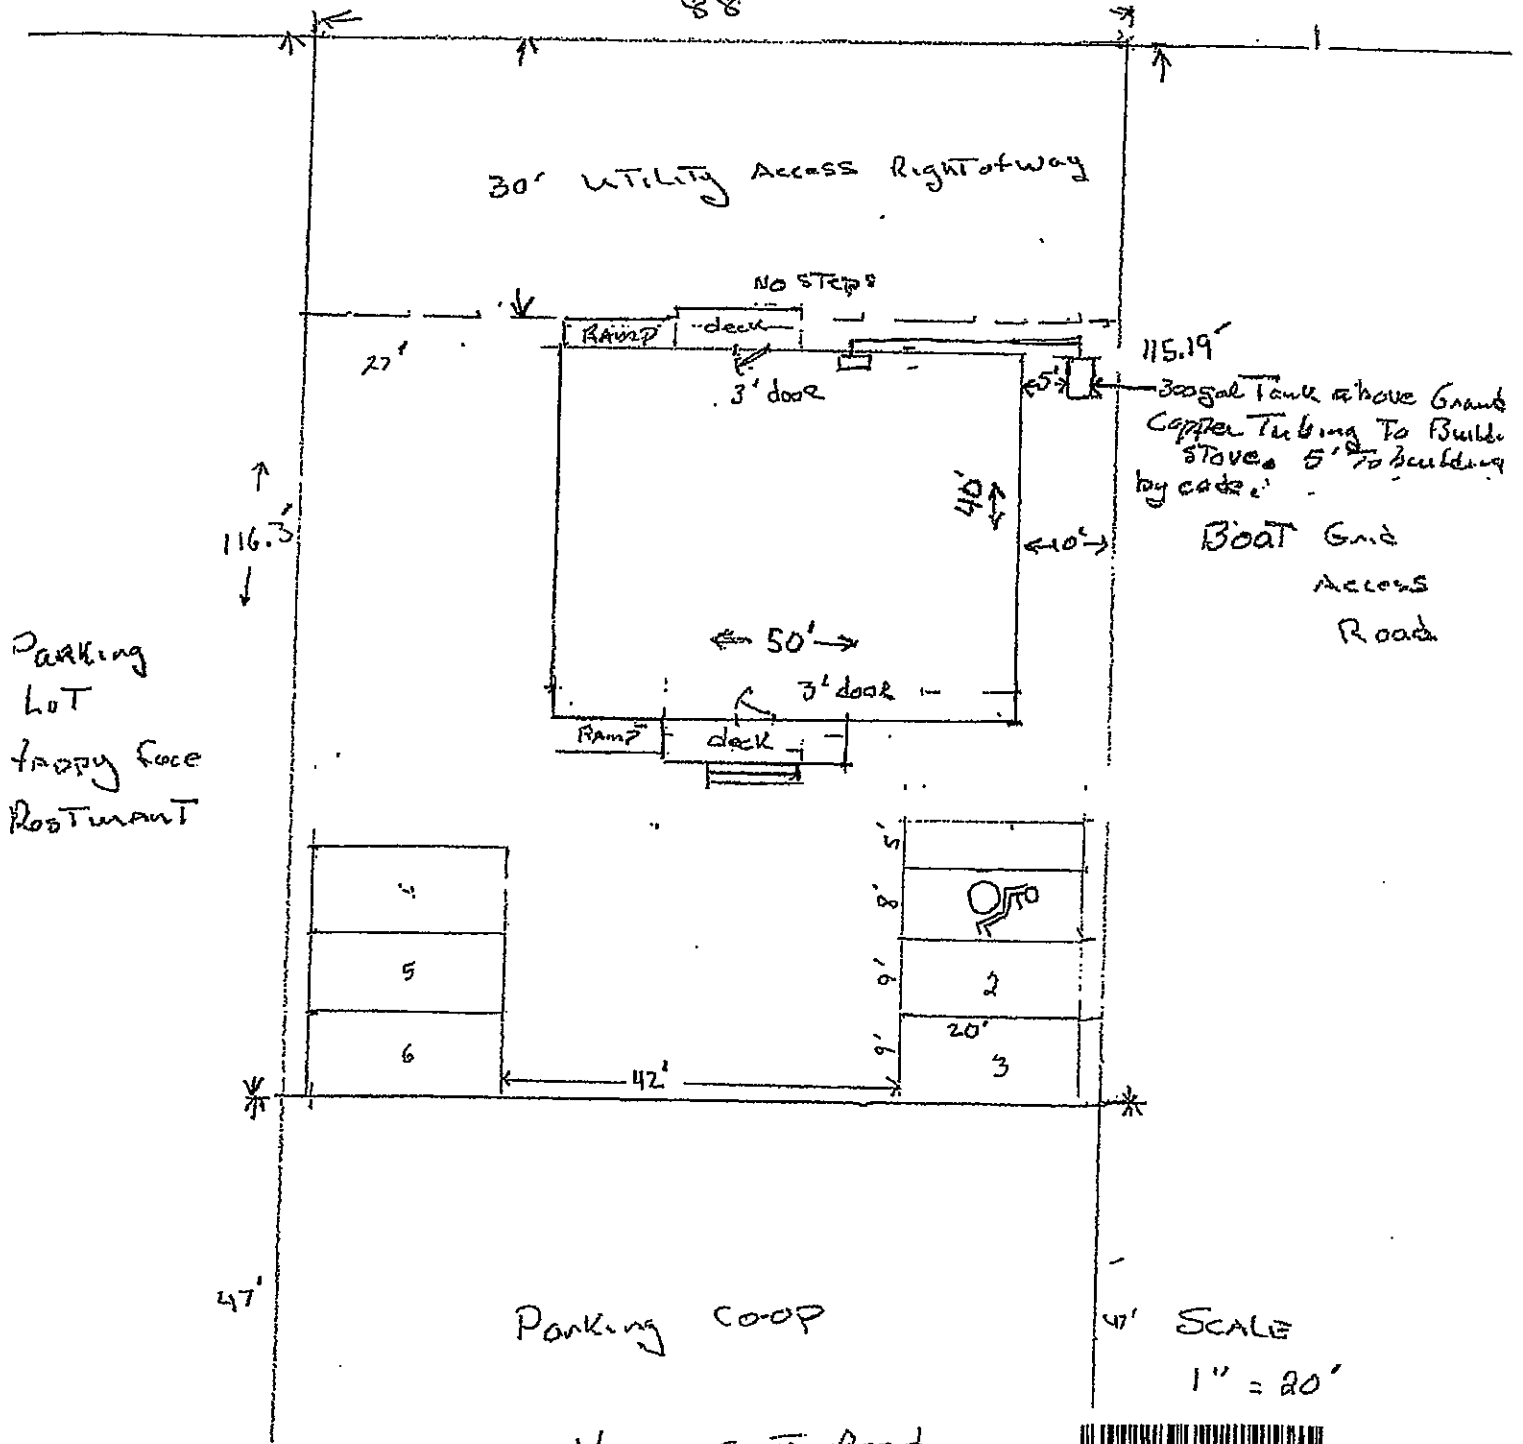 88
30' UTILITY Access RightofWay
NO STEPS
RAMP
deck
27'
3' door
5'
115.19'
300gal Tank above Ground
Copper Tubing To Build.
stove. 5' To building
by code.
40'
10'
116.3'
Boat Grid
Access
Road
Parking
LoT
50'
3' door
RAMP
deck
5'
8'
9'
2
9'
20'
3
5
6
42'
47'
Parking CO-OP
47'
SCALE
1" = 20'
Road